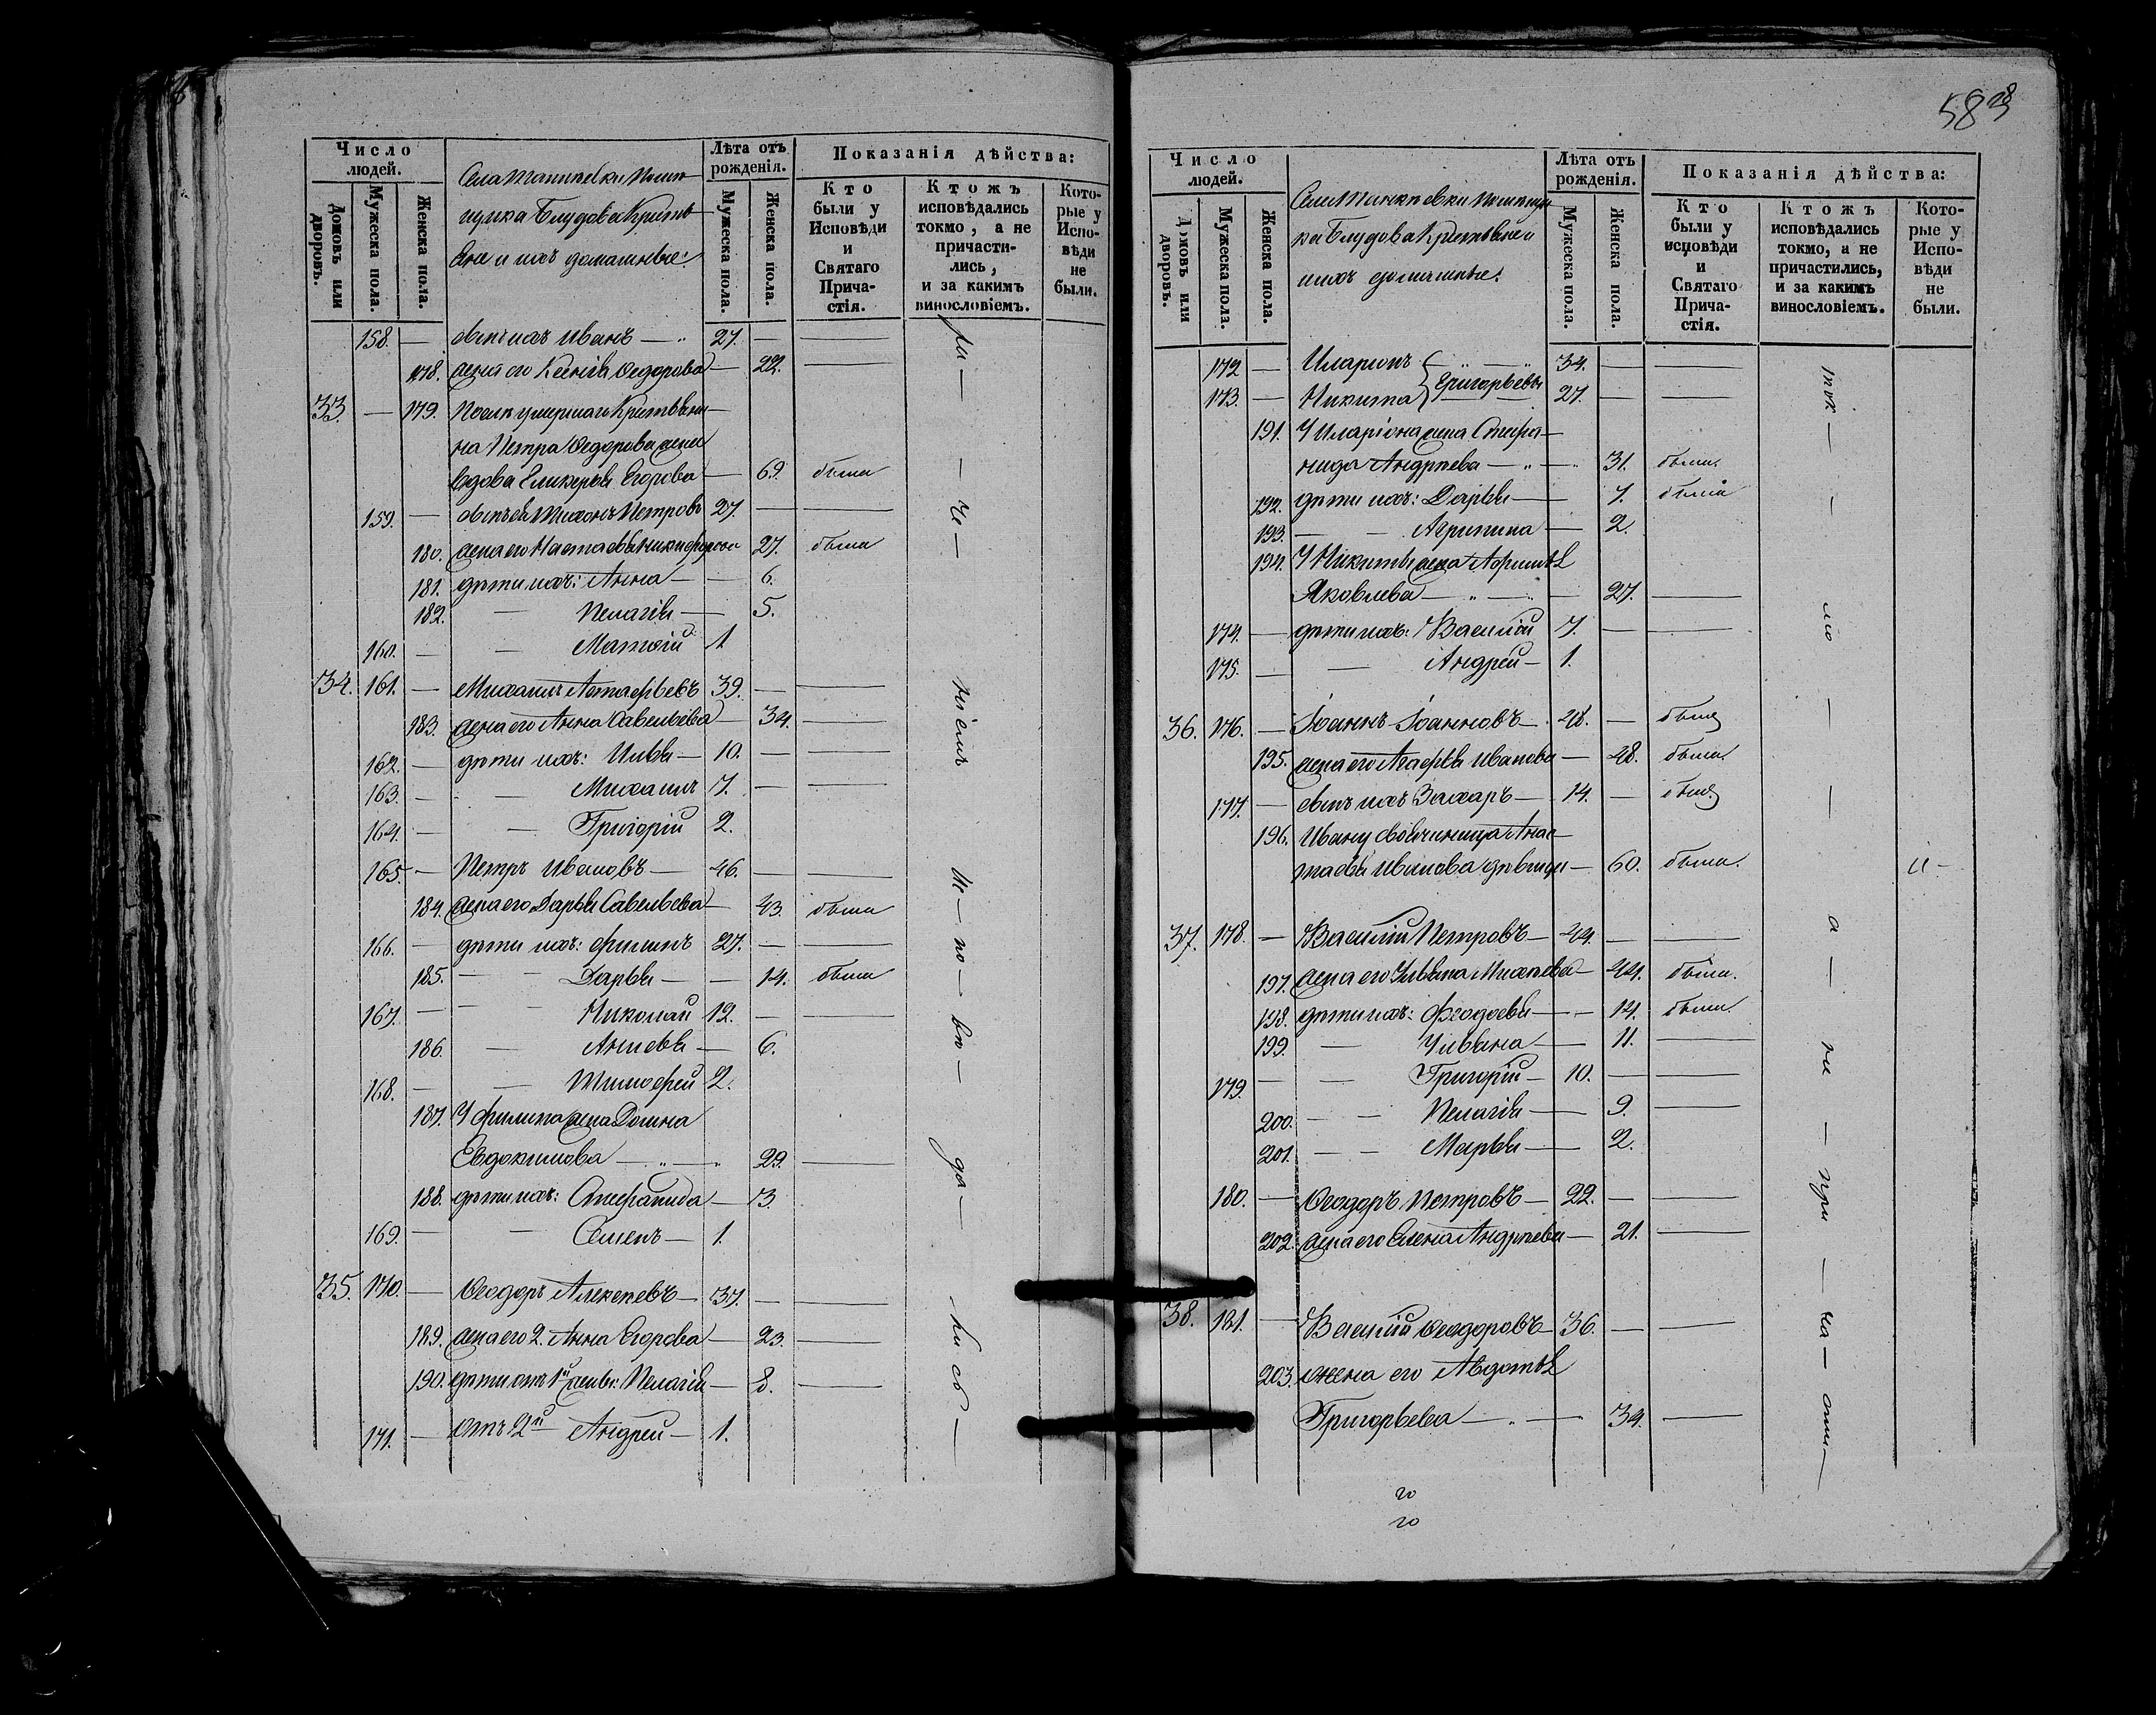 Число людей.
Домовъ или дворовъ.
Мужеска пола.
Женска пола.
Села помѣ-
щика Блудова Кресть-
яне и ихъ домашные:
Лѣта отъ рожденія.
Мужеска пола.
Женска пола.
Показанія дѣйства:
Кто были у Исповѣди и Святаго Прича-стія.
Ктожъ исповѣдались токмо, а не причасти-лись, и за какимъ винословіемъ.
Кото-рые у Испо-вѣди не были.
158. — сынъ ихъ Иванъ — 27. —
178. жена его Ксенія Ѳедорова — 22. —
33. — 179. Послѣ умершаго Крестьяни-
на Петра Ѳедорова жена
вдова Гликерья Егорова — 69. была
159. — сынъ ея Тихонъ Петровъ 27. —
180. жена его Настасья Никифорова 27. была
181. дѣти ихъ: Анна — 6.
182. — Пелагія — 5.
160. — Матѳій 1.
34. 161. — Михаилъ Астафьевъ 39. —
183. жена его Анна Савельева — 34. —
162. — дѣти ихъ: Илья — 10. —
163. — Михаилъ 7. —
164. — Григорій 2.
165. — Петръ Ивановъ — 46. —
184. жена его Дарья Савельева — 43. была
166. — дѣти ихъ: Филипъ 27. —
185. — Дарья — 14. была
167. — Николай 12. —
186. — Анисья — 6.
168. — Тимофей 2.
187. У Филипа жена Домна
Евдокимова — 29. —
188. дѣти ихъ: Стефанида — 3.
169. — Семенъ — 1.
35. 170. — Ѳеодоръ Алексѣевъ — 37. —
189. жена его 2. Анна Егорова — 23. —
190. дѣти отъ 1й жены: Пелагія — 8. —
171. — отъ 2й Андрей — 1.
583
Число людей.
Домовъ или дворовъ.
Мужеска пола.
Женска пола.
Села помѣщи-
ка Блудова Крестьяне и
ихъ домашные:
Лѣта отъ рожденія.
Мужеска пола.
Женска пола.
Показанія дѣйства:
Кто были у исповѣди и Святаго Прича-стія.
Ктожъ исповѣдались токмо, а не причастились, и за какимъ винословіемъ.
Кото-рые у Испо-вѣди не были.
172 — Иларіонъ 34. —
173. — Никита } Григорьевы 27. —
191. У Иларіона жена Стефа-
нида Андрѣева — 31. была.
192. дѣти ихъ: Дарья — 7. была
193. — Агрипина — 2.
194. У Никиты жена Афимья
Яковлева — 27. —
174. — дѣти ихъ: Василій 7. —
175. — Андрей — 1.
36. 176. — Іоаннъ Іоанновъ — 48. — былъ
195. жена его Агафья Иванова — 48. была.
177. — сынъ ихъ Захаръ — 14. — былъ
196. Ивану Анас-
тасья Иванова дѣвица — 60. была.
37. 178. — Василій Петровъ — 44. —
197. жена его Ульяна Михѣева — 44. была.
198. дѣти ихъ: Феодосья — 14. была.
199. — Ульяна — 11. —
179. — Григорій — 10. —
200. — Пелагія — 9. —
201. — Марья — 2.
180. — Ѳеодоръ Петровъ — 22. —
202. жена его Елена Андрѣева — 21. —
38. 181. — Василій Ѳеодоровъ — 36. —
203. жена его Авдотья
Григорьева — 34. —